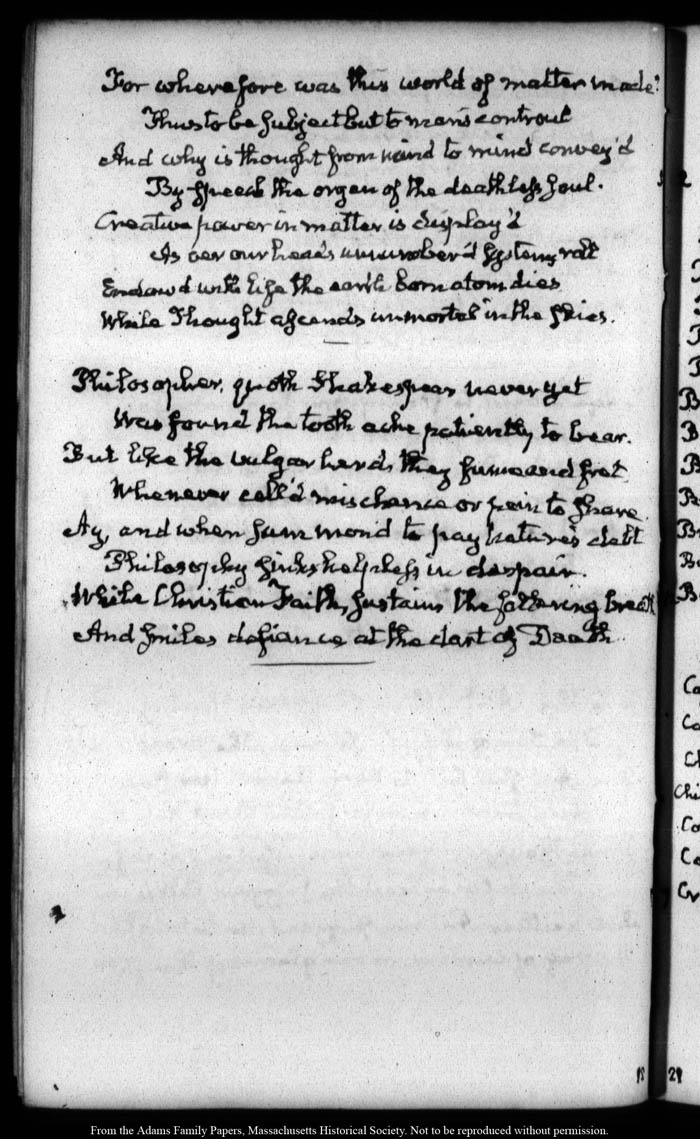 For wherefore was this world of matter made?
Thus to be subject but to man's controul
And why is thought from mind to mind convey'd
By speech the organ of the deathless soul.
Creative power in matter is display'd
As oer our heads unnumber'd systems roll
Endow'd with life the earth born atom dies
While Thought ascends immortal in the skies.
Philosopher, quoth Shakespear never yet
Was found the tooth ache patiently to bear.
But like the vulgar herd, they fume and fret
Whenever call'd mischance or pain to share
Ay, and when summon'd to pay nature's debt
Philosophy sinks helpless in despair.
While Christian Faith, sustains the faltering breath
And smiles defiance at the dart of Death
B
B
B
B
B
B
B
Ca
Ca
Cl
Chi
Co
Co
Cr
29
From the Adams Family Papers, Massachusetts Historical Society. Not to be reproduced without permission.